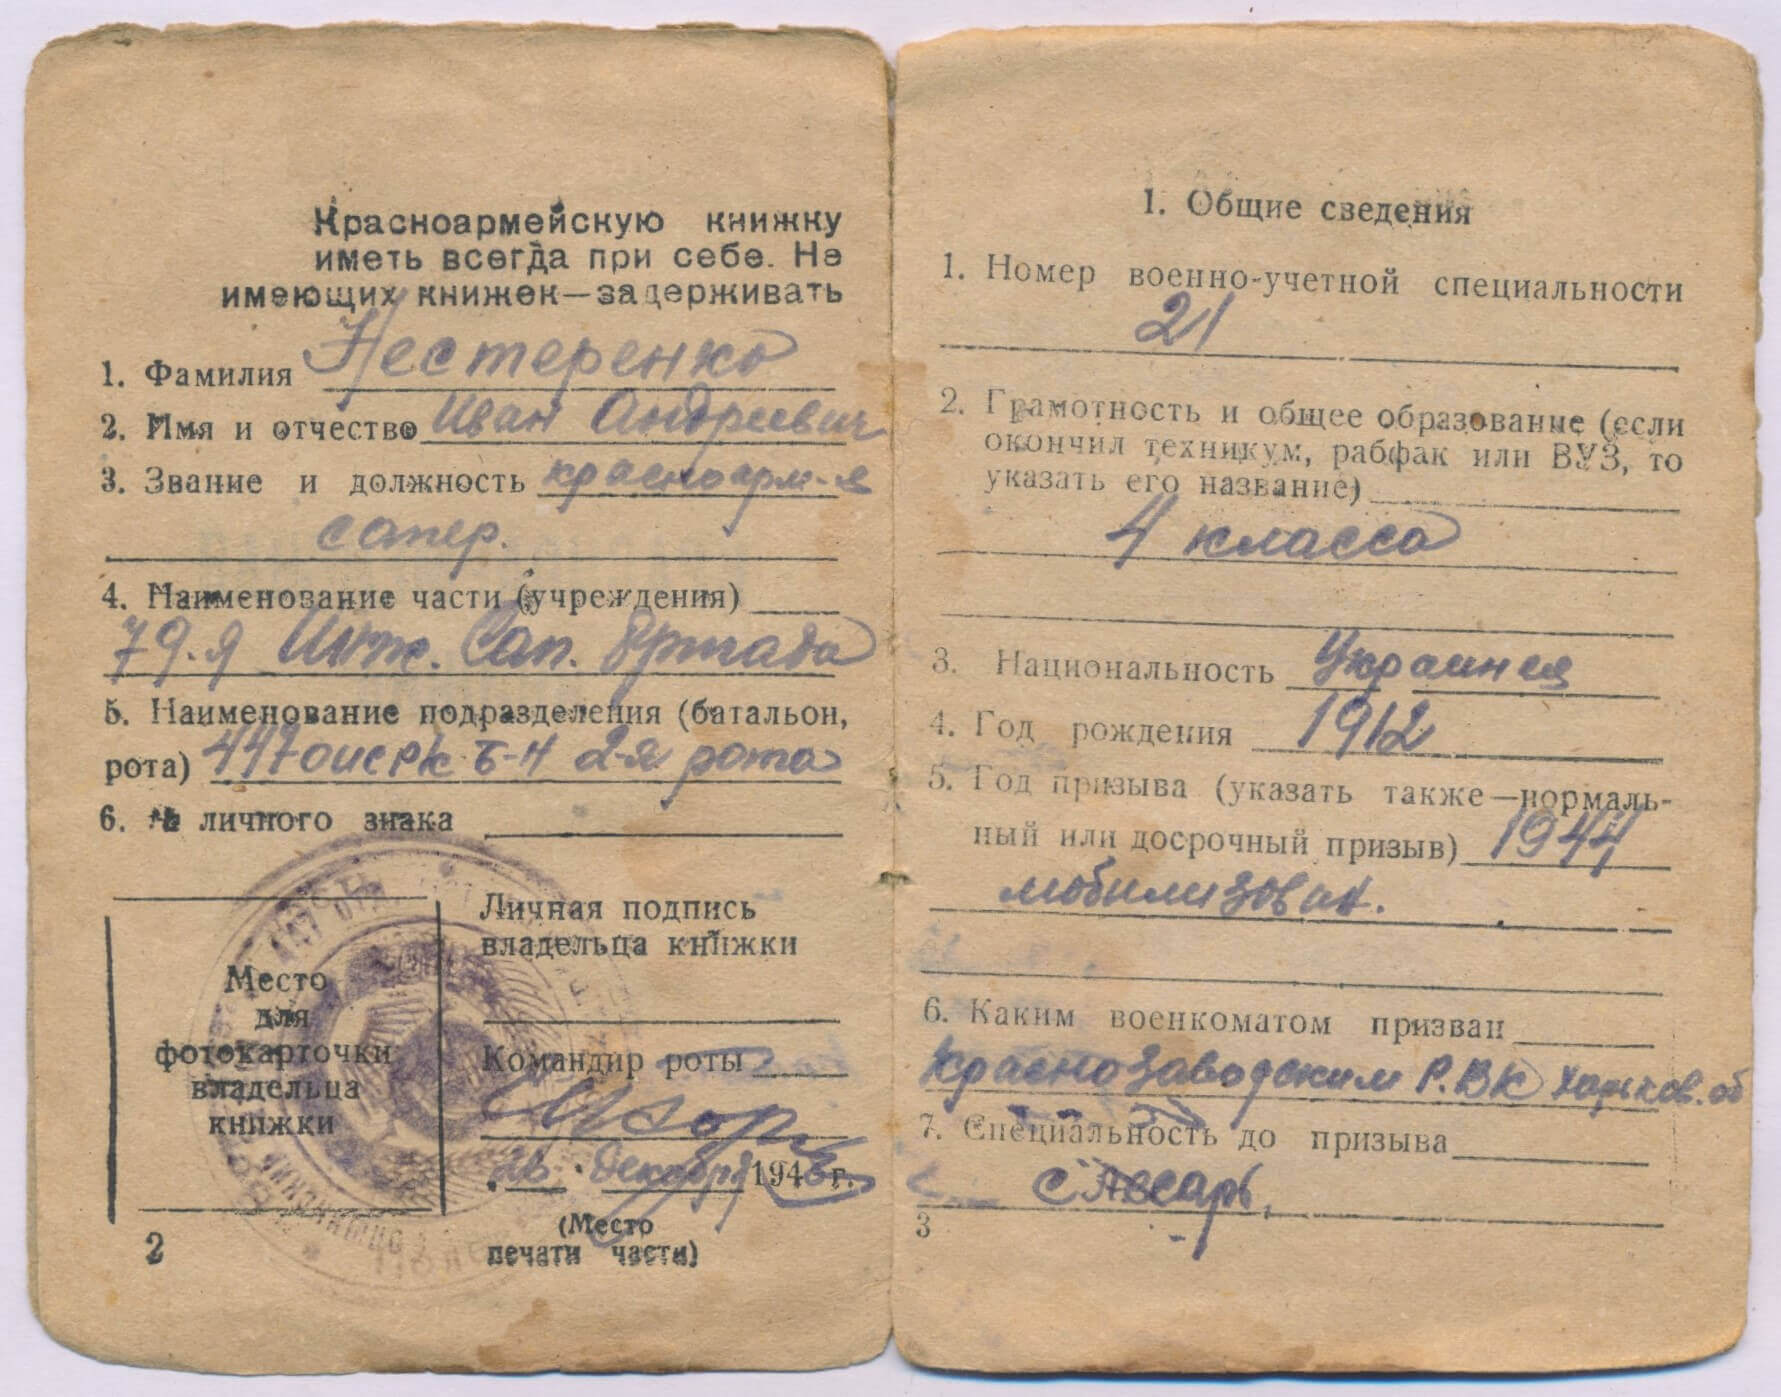 Красноармейскую книжку
иметь всегда при себе. Не
имеющих книжек—задерживать
1. Фамилия Нестеренко
2. Имя и отчество Иван Андреевич
3. Звание и должность красноарм-я
сапер.
4. Наименование части (учреждения)
79-я Инж. Сап. бригада
5. Наименование подразделения (батальон,
рота) 447 б-н 2-я рота
6. № личного знака
Место
для
фотокарточки
владельца
книжки
Личная подпись
владельца книжки
Командир роты
26 декабря 194 г.
(Место
печати части)
2
1. Общие сведения
1. Номер военно-учетной специальности
21
2. Грамотность и общее образование (если
окончил техникум, рабфак или ВУЗ, то
указать его название)
4 класса
3. Национальность Украинец
4. Год рождения 1912
5. Год призыва (указать также—нормаль-
ный или досрочный призыв) 1944
мобилизован.
6. Каким военкоматом призван
Краснозаводским Р.ВК Харьков. об
7. Специальность до призыва
слесарь,
3